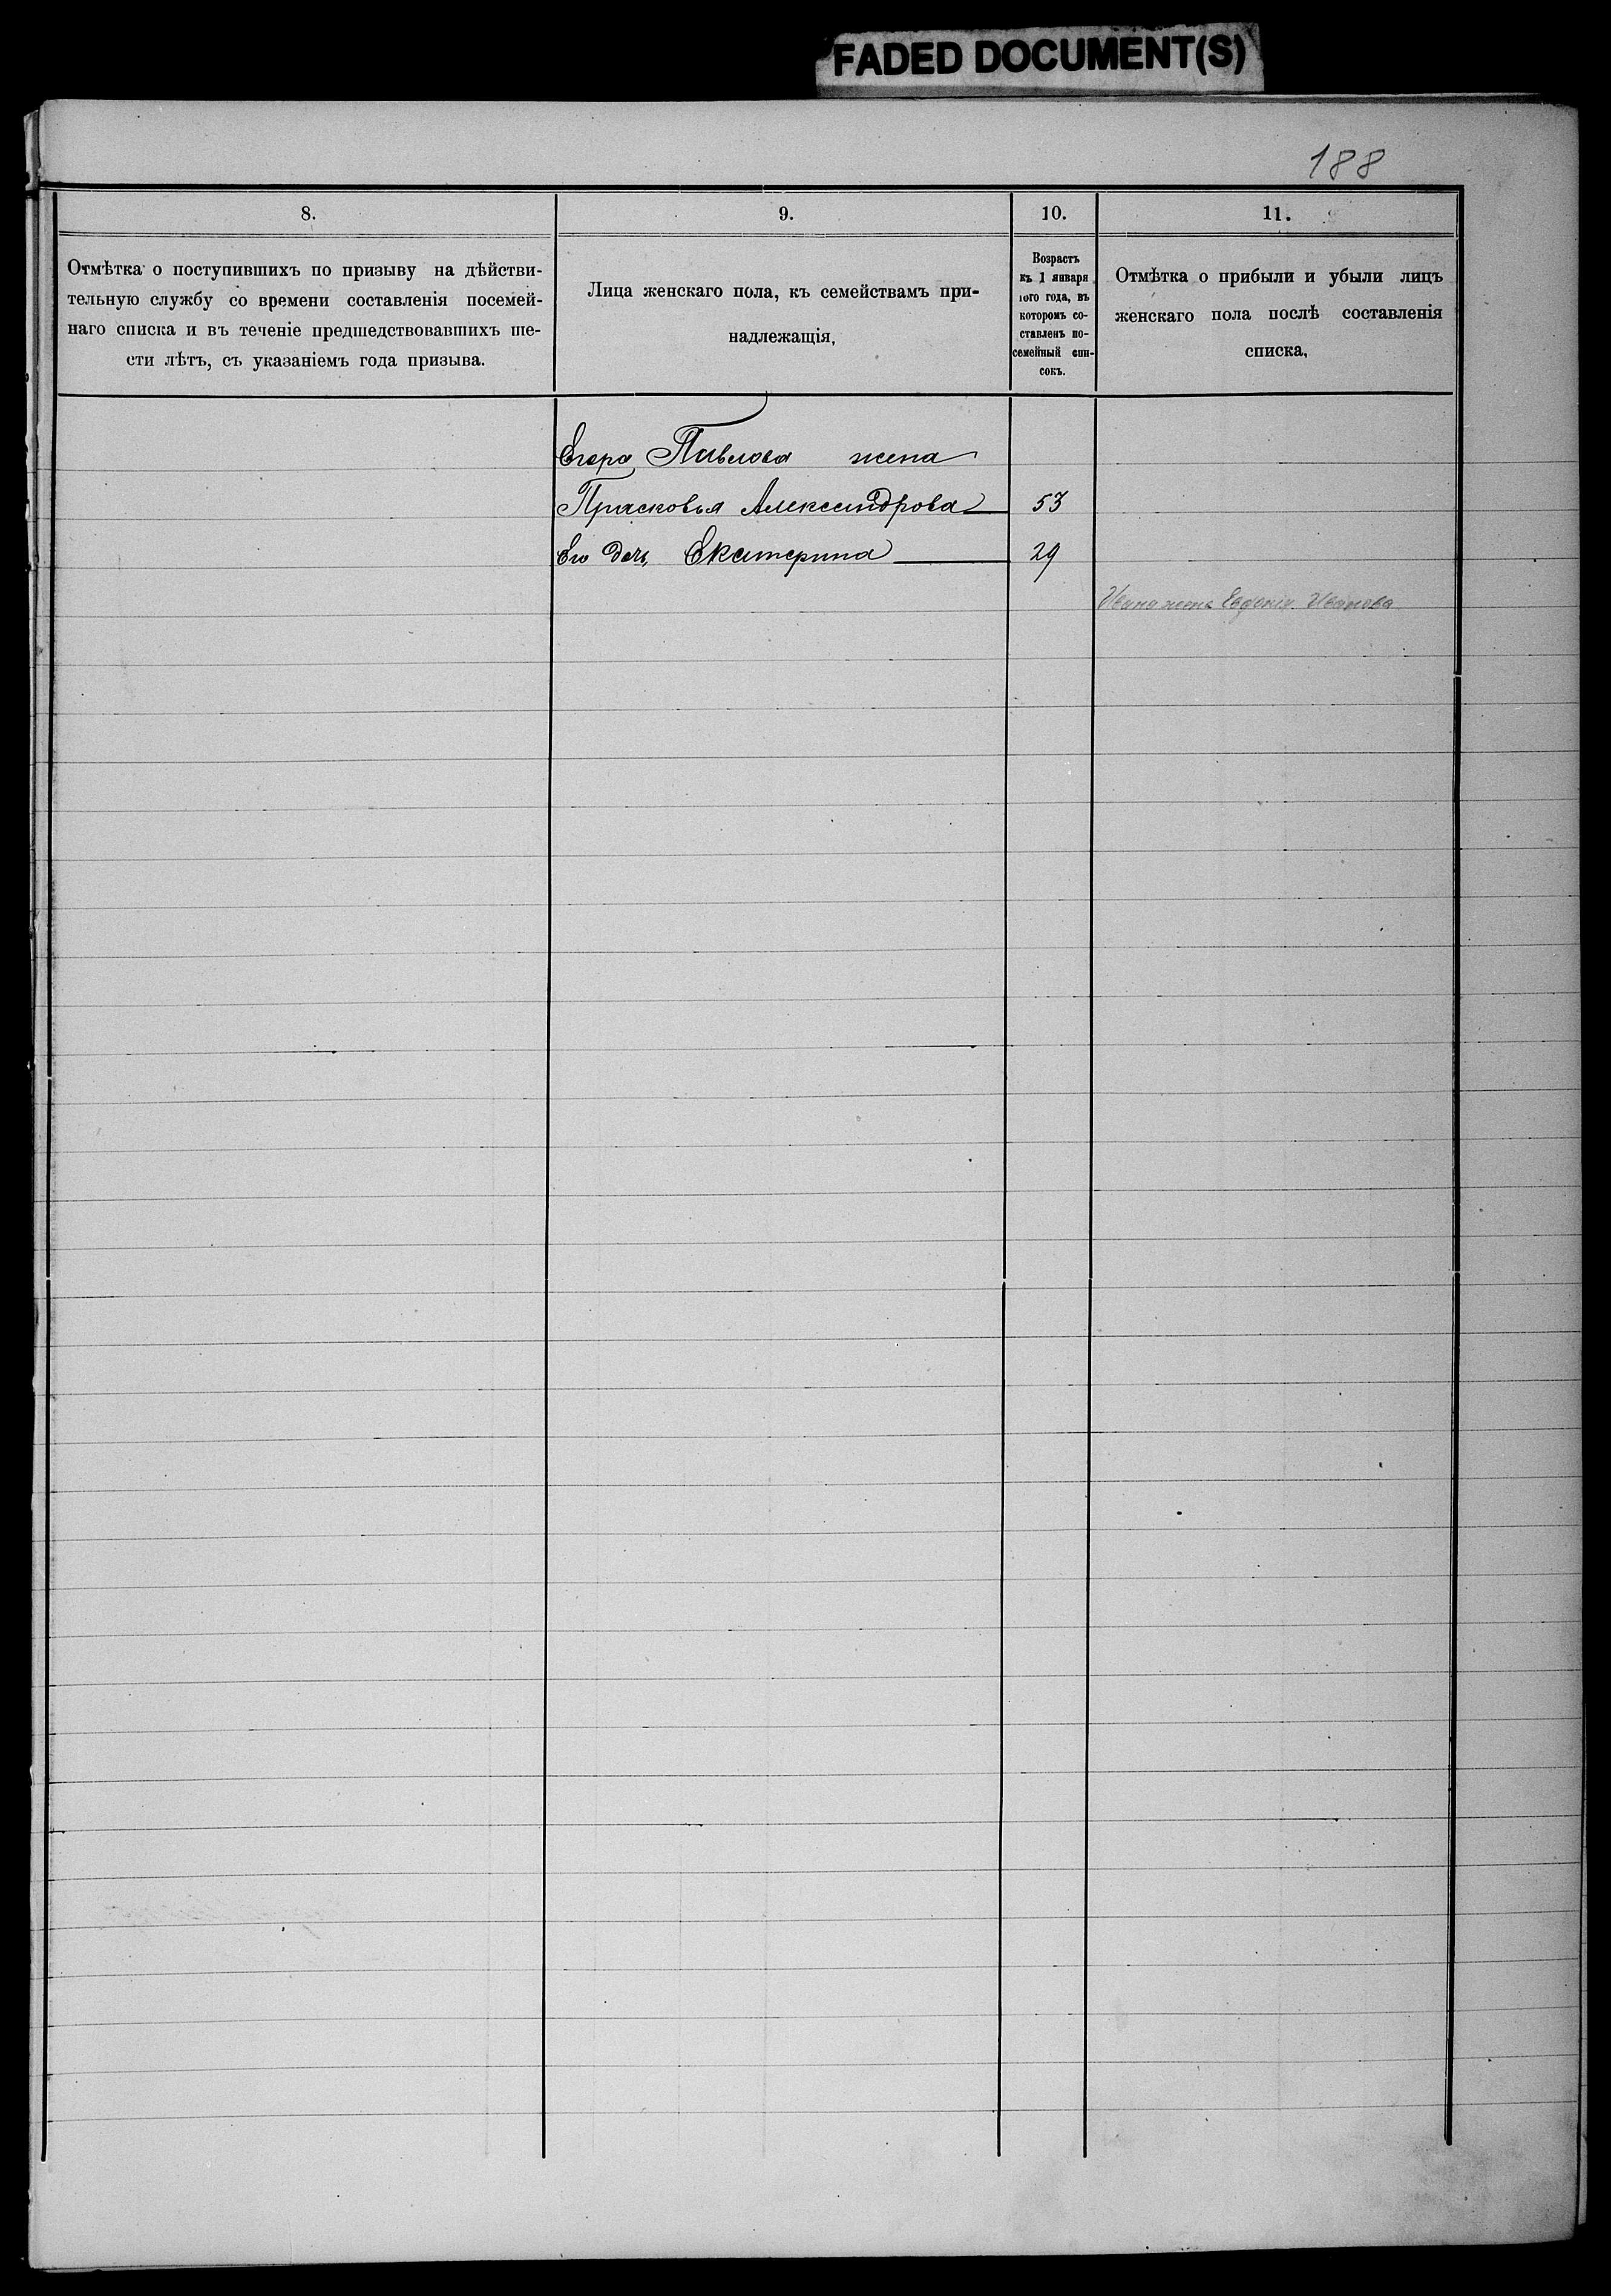 FADED DOCUMENT(S)
188
8.
Отмѣтка о поступившихъ по призыву на дѣйстви-
тельную службу со времени составленія посемей-
наго списка и въ теченіе предшедствовавшихъ ше-
сти лѣтъ, съ указаніемъ года призыва.
9.
Лица женскаго пола, къ семействамъ при-
надлежащія,
10.
Возрастъ
къ 1 января
того года, въ
которомъ со-
ставленъ по-
семейный спи-
сокъ.
11.
Отмѣтка о прибыли и убыли лицъ
женскаго пола послѣ составленія
списка,
Егора Павлова жена
Прасковья Александрова 53
Его дочь Екатерина 29
Ивана жена Евдокія Иванова